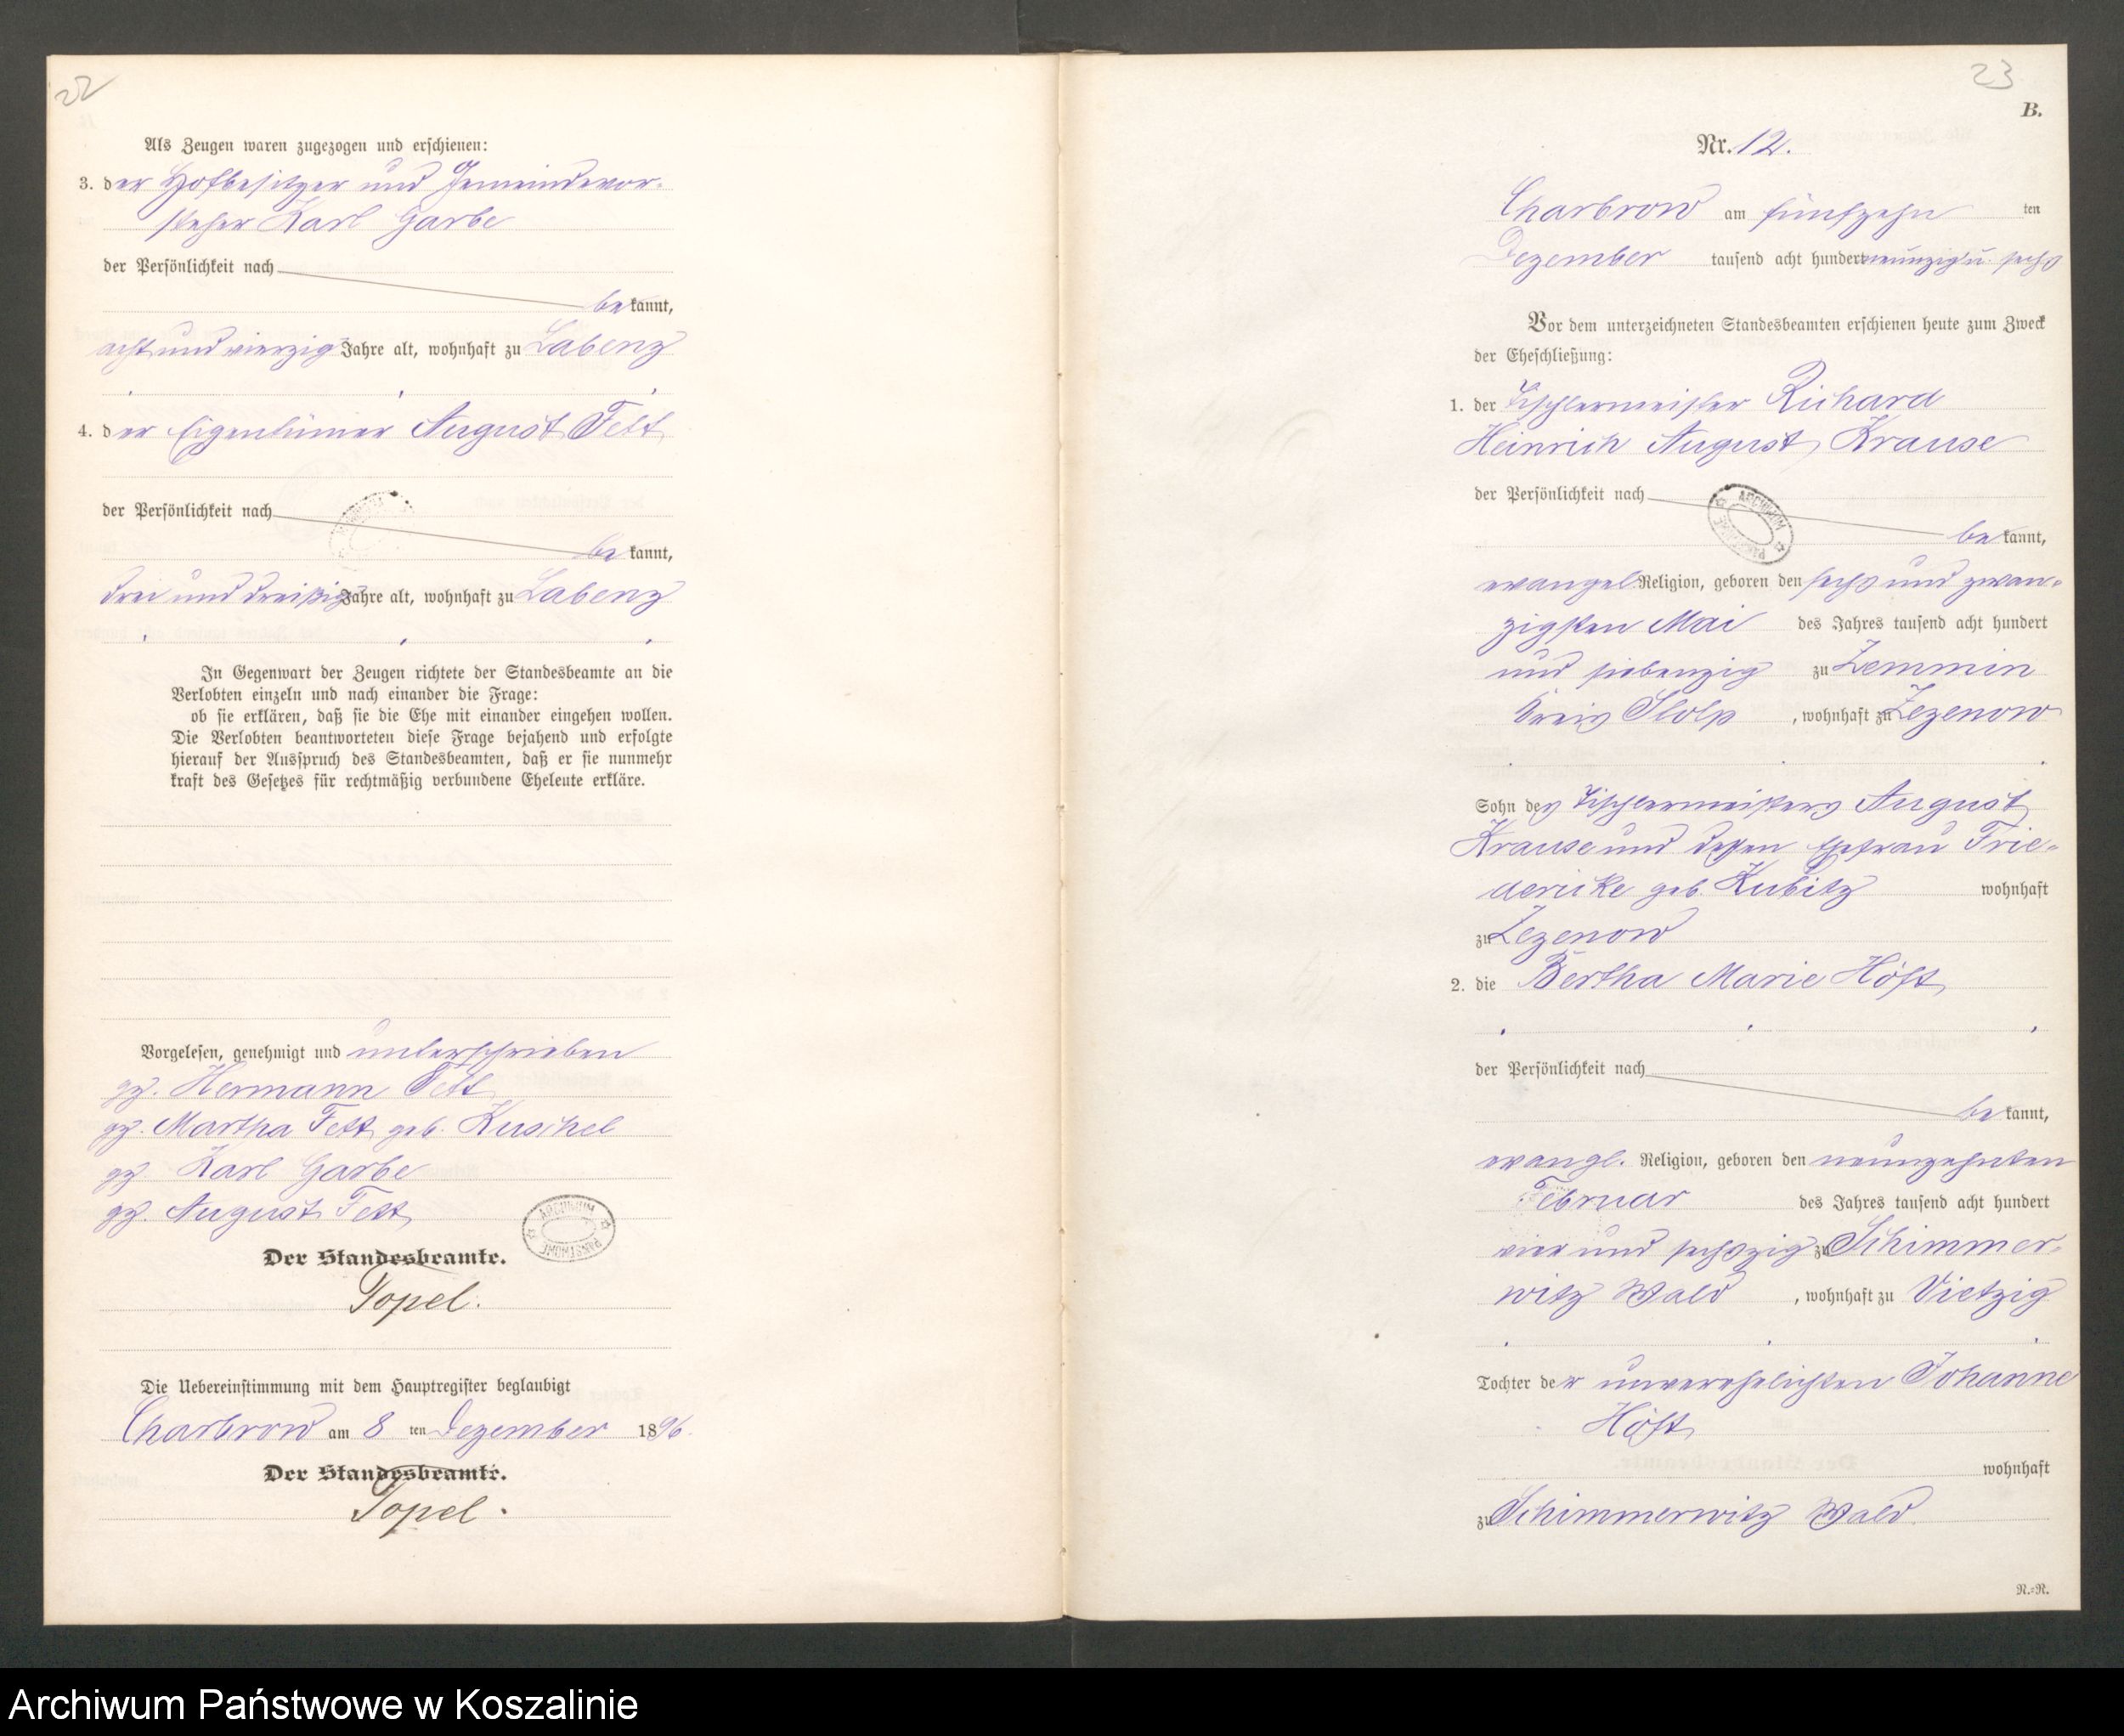 22
Als Zeugen waren zugezogen und erschienen:
3. der Hofbesitzer und Gemeindevor-
steher Karl Garbe
der Persönlichkeit nach
bekannt,
acht und vierzig Jahre alt, wohnhaft zu Labenz
4. der Eigentümer August Fett
der Persönlichkeit nach
bekannt,
drei und dreißig Jahre alt, wohnhaft zu Labenz
In Gegenwart der Zeugen richtete der Standesbeamte an die
Verlobten einzeln und nach einander die Frage:
ob sie erklären, daß sie die Ehe mit einander eingehen wollen.
Die Verlobten beantworteten diese Frage bejahend und erfolgte
hierauf der Ausspruch des Standesbeamten, daß er sie nunmehr
kraft des Gesetzes für rechtmäßig verbundene Eheleute erkläre.
Vorgelesen, genehmigt und unterschrieben
gz. Hermann Fett
gz. Martha Fett geb. Kuschel
gz. Karl Garbe
gz. August Fett
ARCHIWUM PAŃSTWOWE
Der Standesbeamte.
Topel.
Die Uebereinstimmung mit dem Hauptregister beglaubigt
Charbrow am 8 ten Dezember 1896.
Der Standesbeamte.
Topel.
23
B.
Nr. 12.
Charbrow am fünfzehn ten
Dezember tausend acht hundert neunzig u. sechs
Vor dem unterzeichneten Standesbeamten erschienen heute zum Zweck
der Eheschließung:
1. der Tischlermeister Richard
Heinrich August Krause
der Persönlichkeit nach
ARCHIWUM PAŃSTWOWE
bekannt,
evangel. Religion, geboren den sechs und zwan-
zigsten Mai des Jahres tausend acht hundert
und siebenzig zu Zemmin
Kreis Stolp, wohnhaft zu Zezenow
Sohn des Tischlermeisters August
Krause und dessen Ehefrau Frie-
dericke geb. Kubitz wohnhaft
zu Zezenow
2. die Bertha Marie Höft
der Persönlichkeit nach
bekannt,
evangl. Religion, geboren den neunzehnten
Februar des Jahres tausend acht hundert
vier und sechszig zu Schimmer-
witz Wald, wohnhaft zu Vietzig
Tochter der unverehelichten Johanne
Höft
wohnhaft
zu Schimmerwitz Wald.
N.=N.
Archiwum Państwowe w Koszalinie